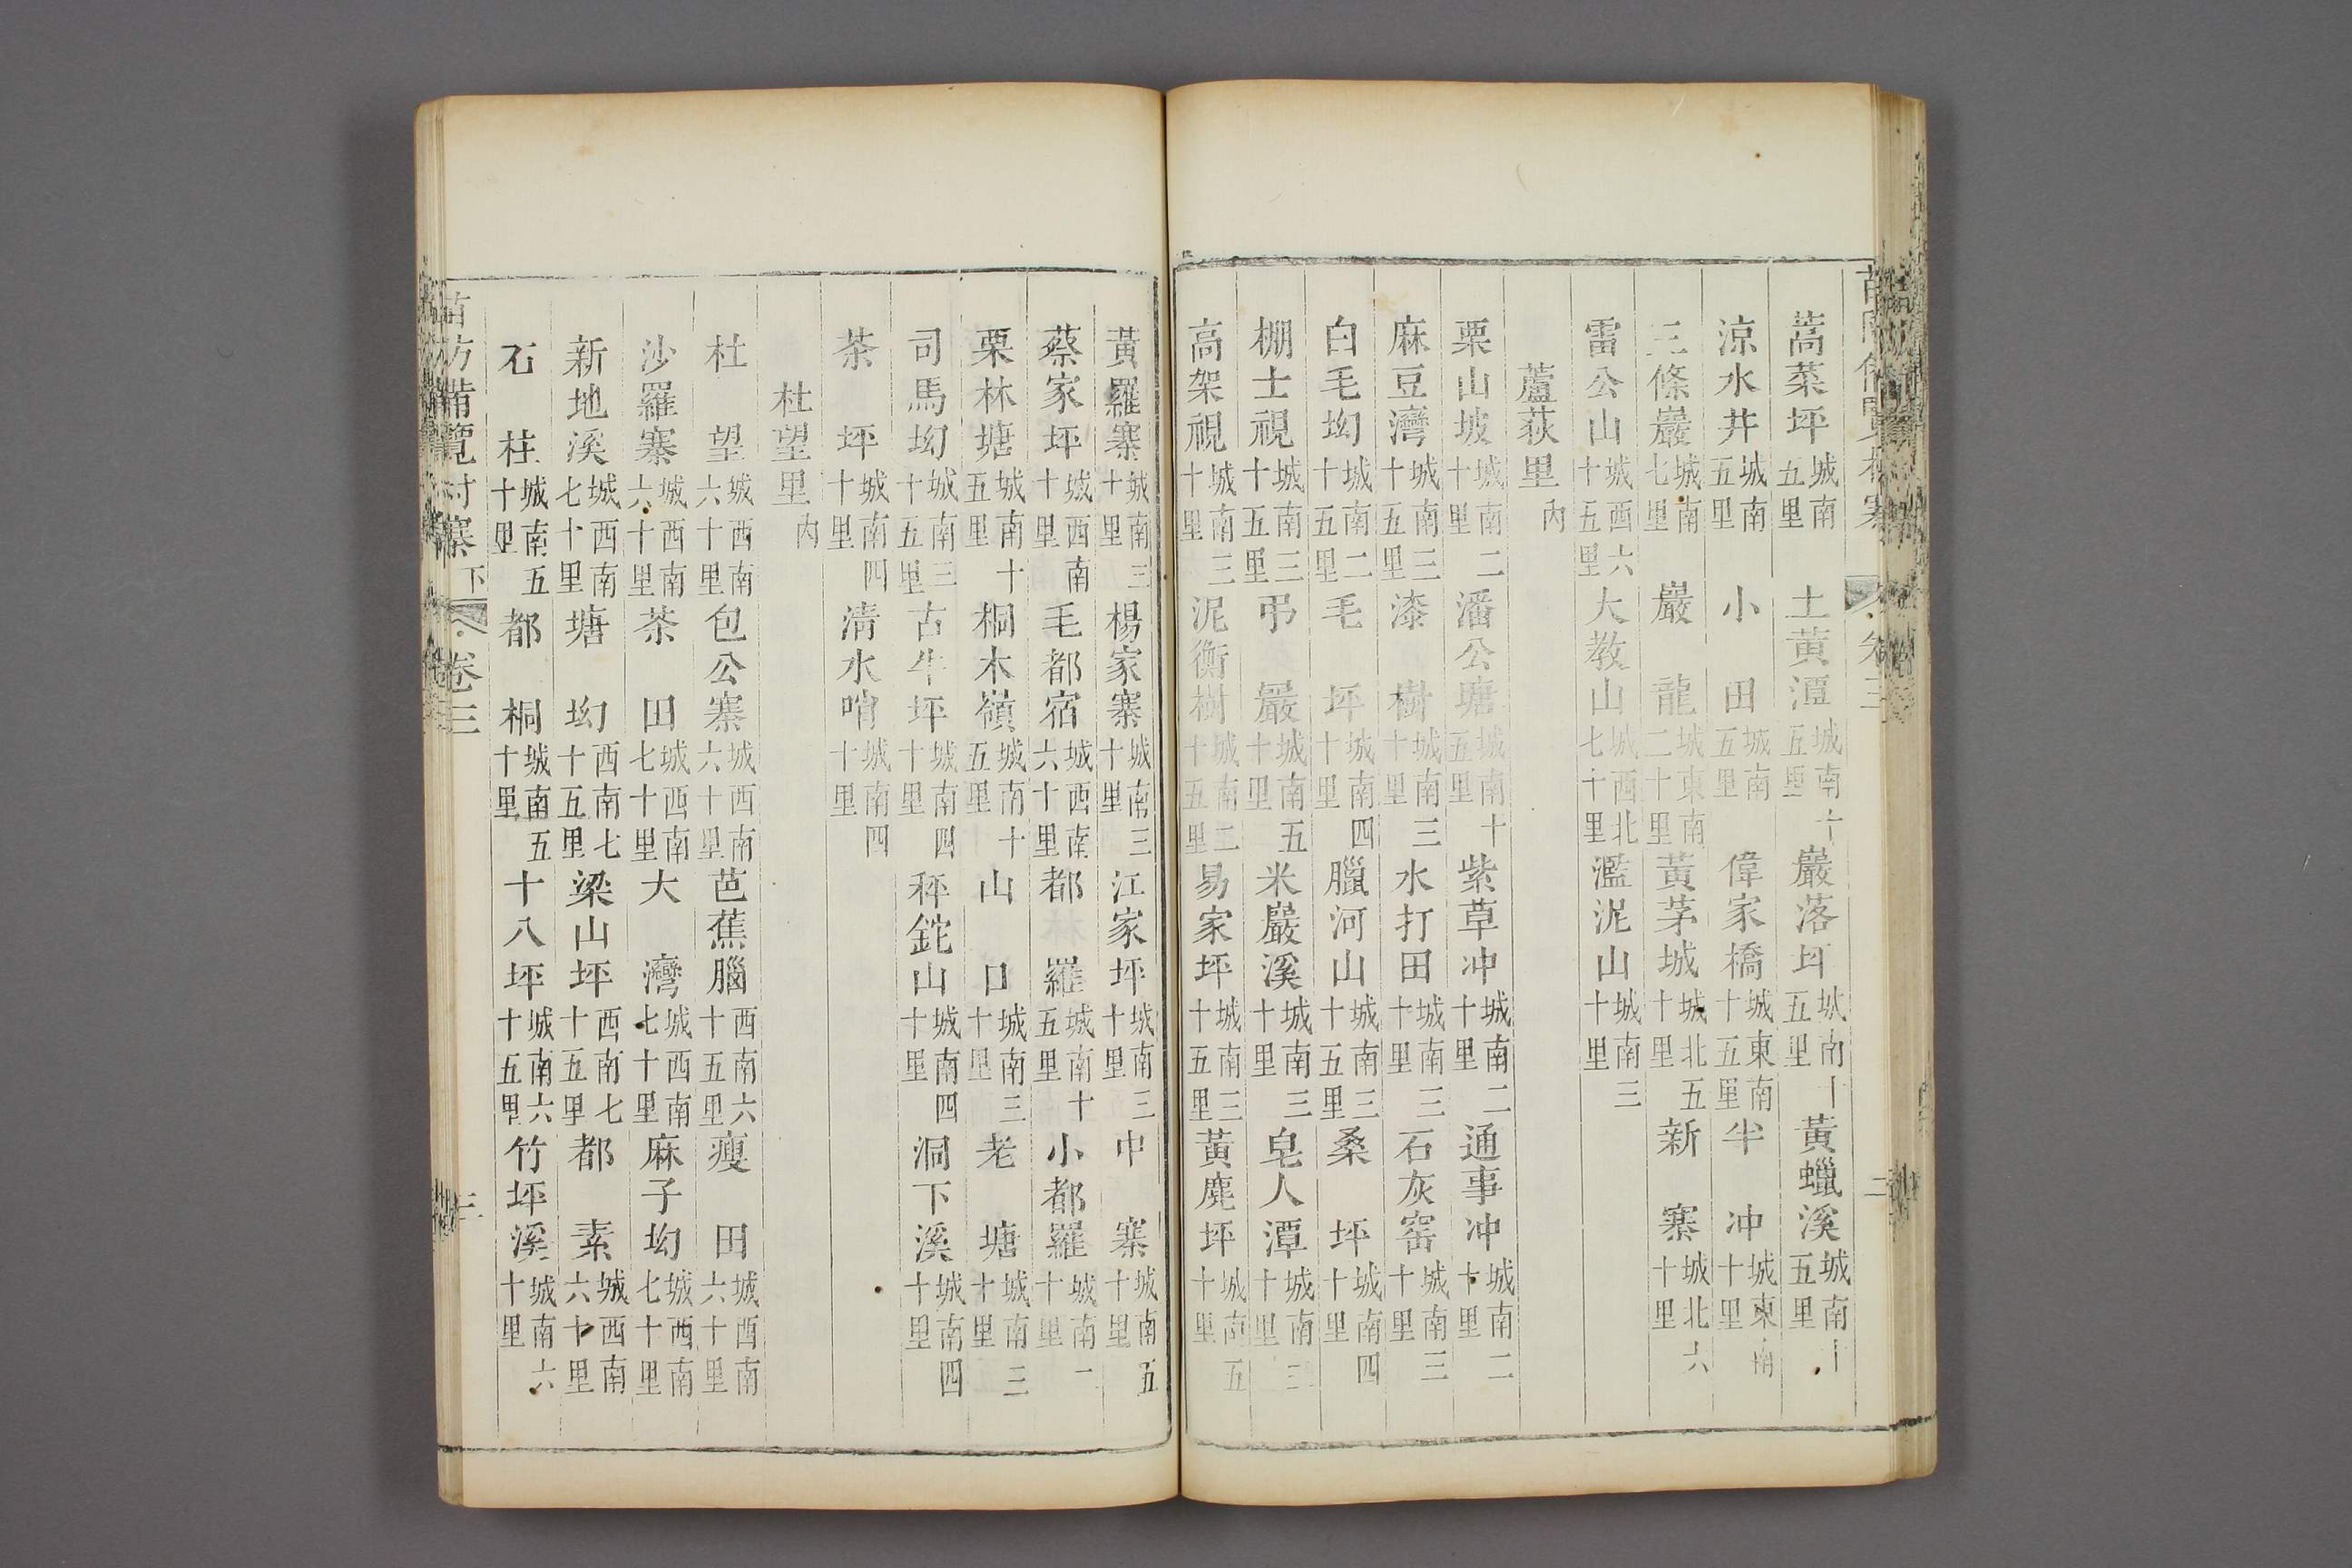 蒿菜坪城南五里 土黃潭城南十五里 巖落㘰城南十五里 黃蠟溪城南十五里
涼水井城南五里 小田城南五里 偉家橋城東南十五里 半冲城東南十里
三條巖城南七里 巖龍城東南二十里 黃茅城城北五十里 新寨城北六十里
雷公山城西六十五里 大教山城西北七十里 濫泥山城南三十里
蘆荻里內
栗山坡城南二十里 潘公塘城南十五里 紫草冲城南二十里 通事冲城南二十里
麻豆灣城南三十五里 漆樹城南三十里 水打田城南三十里 石灰窑城南三十里
白毛坳城南二十五里 毛坪城南四十里 臘河山城南三十五里 桑坪城南四十里
棚士視城南三十五里 弔巖城南五十里 米巖溪城南三十里 皂人潭城南三十里
高架視城南三十里 泥衡樹城南二十五里 易家坪城南三十五里 黃麂坪城南五十里
黃羅寨城南三十里 楊家寨城南三十里 江家坪城南三十里 中寨城南五十里
蔡家坪城西南十里 毛都宿城西南六十里 都羅城南十五里 小都羅城南二十里
栗林塘城南十五里 桐木嶺城南十五里 山口城南三十里 老塘城南三十里
司馬坳城南三十五里 古牛坪城南四十里 秤鉈山城南四十里 洞下溪城南四十里
茶坪城南四十里 清水哨城南四十里
杜望里內
杜望城西南六十里 包公寨城西南六十里 芭蕉腦西南六十五里 瘦田城西南六十里
沙羅寨城西南六十里 茶田城西南七十里 大灣城西南七十里 麻子坳城西南七十里
新地溪城西南七十里 塘坳西南七十五里 梁山坪西南七十五里 都素城西南六十里
石柱城南五十里 都桐城南五十里 十八坪城南六十五里 竹坪溪城南六十里
苗防備覽村寨下 卷三 三